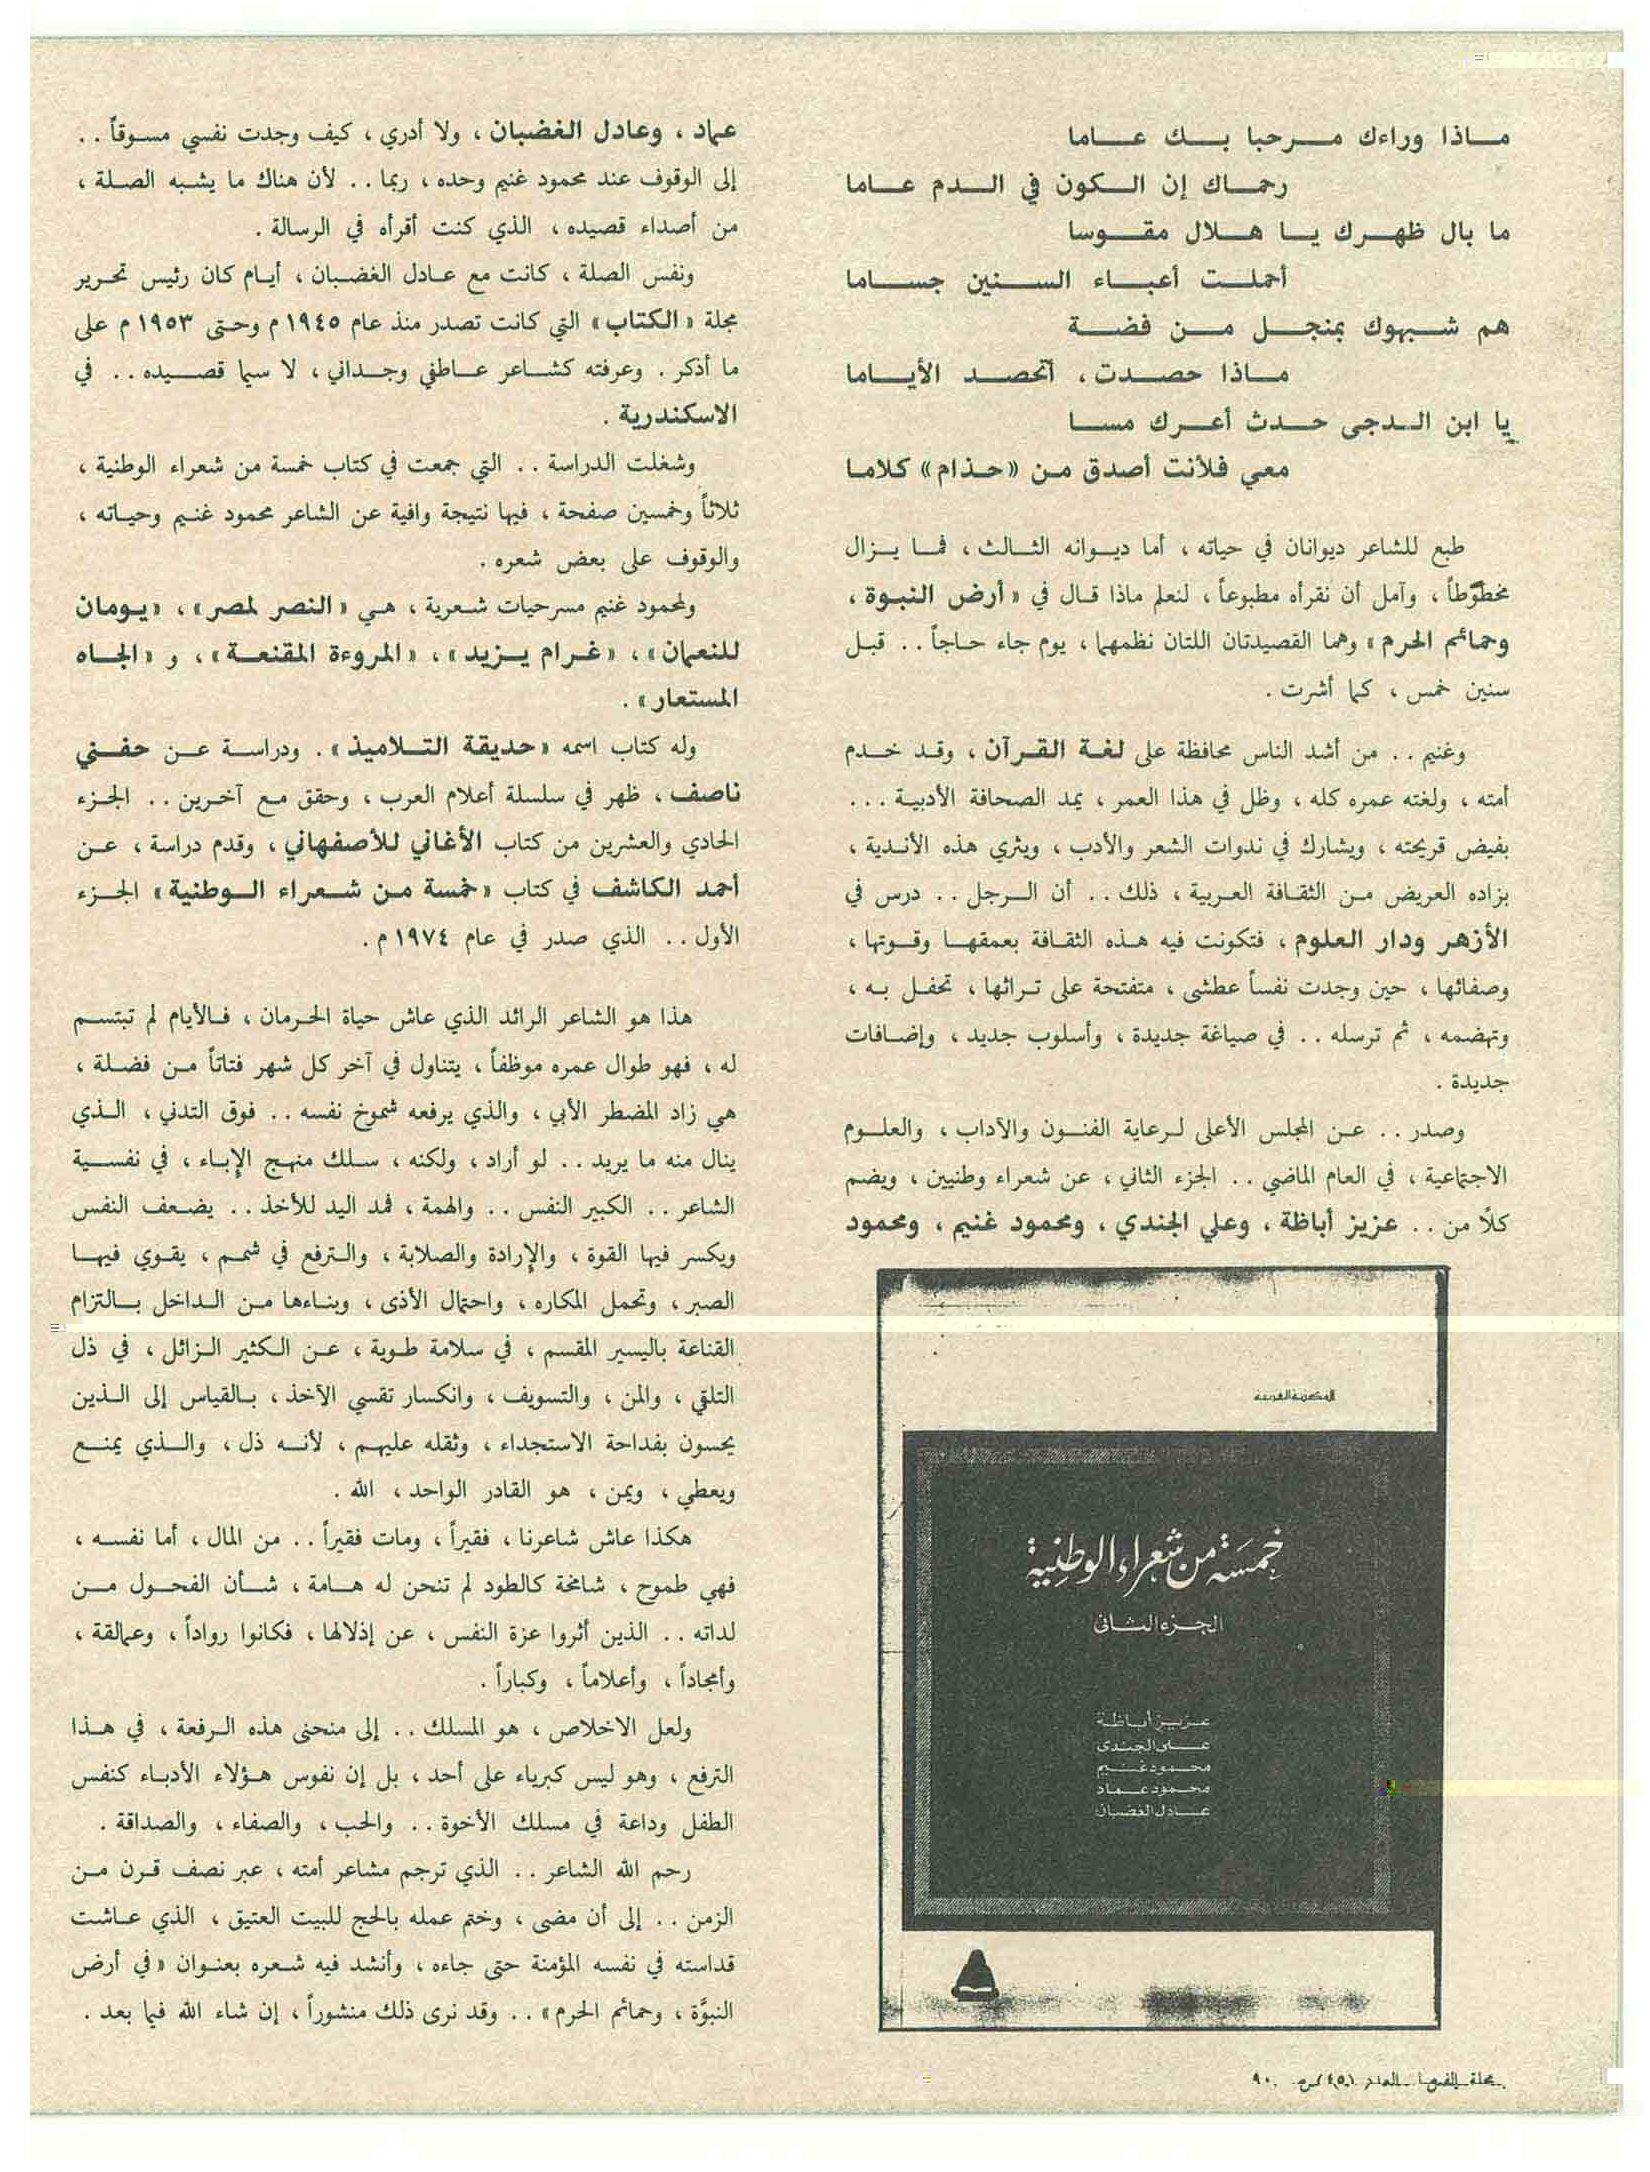 ماذا وراءك مرحبا بك عاما
رحماك إن الكون في الدم عاما
ما بال ظهرك يا هلال مقوسا
أحملت أعباء السنين جساما
هم شبهوك بمنجل من فضة
ماذا حصدت، أتحصد الأياما
يا ابن الدجى حدث أعرك مسا
معي فلأنت أصدق من «حذام» كلاما
طبع للشاعر ديوانان في حياته ، أما ديوانه الثالث ، فما يزال
مخطوطاً ، وآمل أن نقرأه مطبوعاً ، لنعلم ماذا قال في «أرض النبوة ،
وحمائم الحرم» وهما القصيدتان اللتان نظمهما ، يوم جاء حاجاً .. قبل
سنين خمس ، كما أشرت .
وغنيم .. من أشد الناس محافظة على لغة القرآن ، وقد خدم
أمته ، ولغته عمره كله ، وظل في هذا العمر ، يمد الصحافة الأدبية ...
بفيض قريحته ، ويشارك في ندوات الشعر والأدب ، ويثري هذه الأندية ،
بزاده العريض من الثقافة العربية ، ذلك .. أن الرجل .. درس في
الأزهر ودار العلوم ، فتكونت فيه هذه الثقافة بعمقها وقوتها ،
وصفائها ، حين وجدت نفساً عطشى ، متفتحة على تراثها ، تحفل به ،
وتهضمه ، ثم ترسله .. في صياغة جديدة ، وأسلوب جديد ، وإضافات
جديدة .
وصدر .. عن المجلس الأعلى لرعاية الفنون والآداب ، والعلوم
الاجتماعية ، في العام الماضي .. الجزء الثاني ، عن شعراء وطنيين ، ويضم
كلًا من .. عزيز أباظة ، وعلي الجندي ، ومحمود غنيم ، ومحمود
المكتبة العربية
خمسة من شعراء الوطنية
الجزء الثاني
عزيز أباظة
على الجندى
محمود غنيم
محمود عماد
عادل الغضبان
عماد ، وعادل الغضبان ، ولا أدري ، كيف وجدت نفسي مسوقاً ..
إلى الوقوف عند محمود غنيم وحده ، ربما .. لأن هناك ما يشبه الصلة ،
من أصداء قصيده ، الذي كنت أقرأه في الرسالة .
ونفس الصلة ، كانت مع عادل الغضبان ، أيام كان رئيس تحرير
مجلة «الكتاب» التي كانت تصدر منذ عام ١٩٤٥ م وحتى ١٩٥٣ م على
ما أذكر . وعرفته كشاعر عاطفي وجداني ، لا سيما قصيده .. في
الاسكندرية .
وشغلت الدراسة .. التي جمعت في كتاب خمسة من شعراء الوطنية ،
ثلاثاً وخمسين صفحة ، فيها نتيجة وافية عن الشاعر محمود غنيم وحياته ،
والوقوف على بعض شعره .
ولمحمود غنيم مسرحيات شعرية ، هي «النصر لمصر» ، «يومان
للنعمان» ، «غرام يزيد» ، «المروءة المقنعة» ، و «الجاه
المستعار» .
وله كتاب اسمه «حديقة التلاميذ» . ودراسة عن حفني
ناصف ، ظهر في سلسلة أعلام العرب ، وحقق مع آخرين .. الجزء
الحادي والعشرين من كتاب الأغاني للأصفهاني ، وقدم دراسة ، عن
أحمد الكاشف في كتاب «خمسة من شعراء الوطنية» الجزء
الأول .. الذي صدر في عام ١٩٧٤ م .
هذا هو الشاعر الرائد الذي عاش حياة الحرمان ، فالأيام لم تبتسم
له ، فهو طوال عمره موظفاً ، يتناول في آخر كل شهر فتاتاً من فضلة ،
هي زاد المضطر الأبي ، والذي يرفعه شموخ نفسه .. فوق التدني ، الذي
ينال منه ما يريد .. لو أراد ، ولكنه ، سلك منهج الإباء ، في نفسية
الشاعر .. الكبير النفس .. والهمة ، فمد اليد للأخذ .. يضعف النفس
ويكسر فيها القوة ، والإرادة والصلابة ، والترفع في شمم ، يقوي فيها
الصبر ، وتحمل المكاره ، واحتمال الأذى ، وبناءها من الداخل بالتزام
القناعة باليسير المقسم ، في سلامة طوية ، عن الكثير الزائل ، في ذل
التلقي ، والمن ، والتسويف ، وانكسار تقسي الآخذ ، بالقياس إلى الذين
يحسون بفداحة الاستجداء ، وثقله عليهم ، لأنه ذل ، والذي يمنع
ويعطي ، ويمن ، هو القادر الواحد ، الله .
هكذا عاش شاعرنا ، فقيراً ، ومات فقيراً .. من المال ، أما نفسه ،
فهي طموح ، شامخة كالطود لم تنحن له هامة ، شأن الفحول من
لداته .. الذين أثروا عزة النفس ، عن إذلالها ، فكانوا رواداً ، وعمالقة ،
وأمجاداً ، وأعلاماً ، وكباراً .
ولعل الاخلاص ، هو المسلك .. إلى منحنى هذه الرفعة ، في هذا
الترفع ، وهو ليس كبرياء على أحد ، بل إن نفوس هؤلاء الأدباء كنفس
الطفل وداعة في مسلك الأخوة .. والحب ، والصفاء ، والصداقة .
رحم الله الشاعر .. الذي ترجم مشاعر أمته ، عبر نصف قرن من
الزمن .. إلى أن مضى ، وختم عمله بالحج للبيت العتيق ، الذي عاشت
قداسته في نفسه المؤمنة حتى جاءه ، وأنشد فيه شعره بعنوان «في أرض
النبوَّة ، وحمائم الحرم» .. وقد نرى ذلك منشوراً ، إن شاء الله فيما بعد .
مجلة الفيصل العدد (٤٥) ص ٩٠